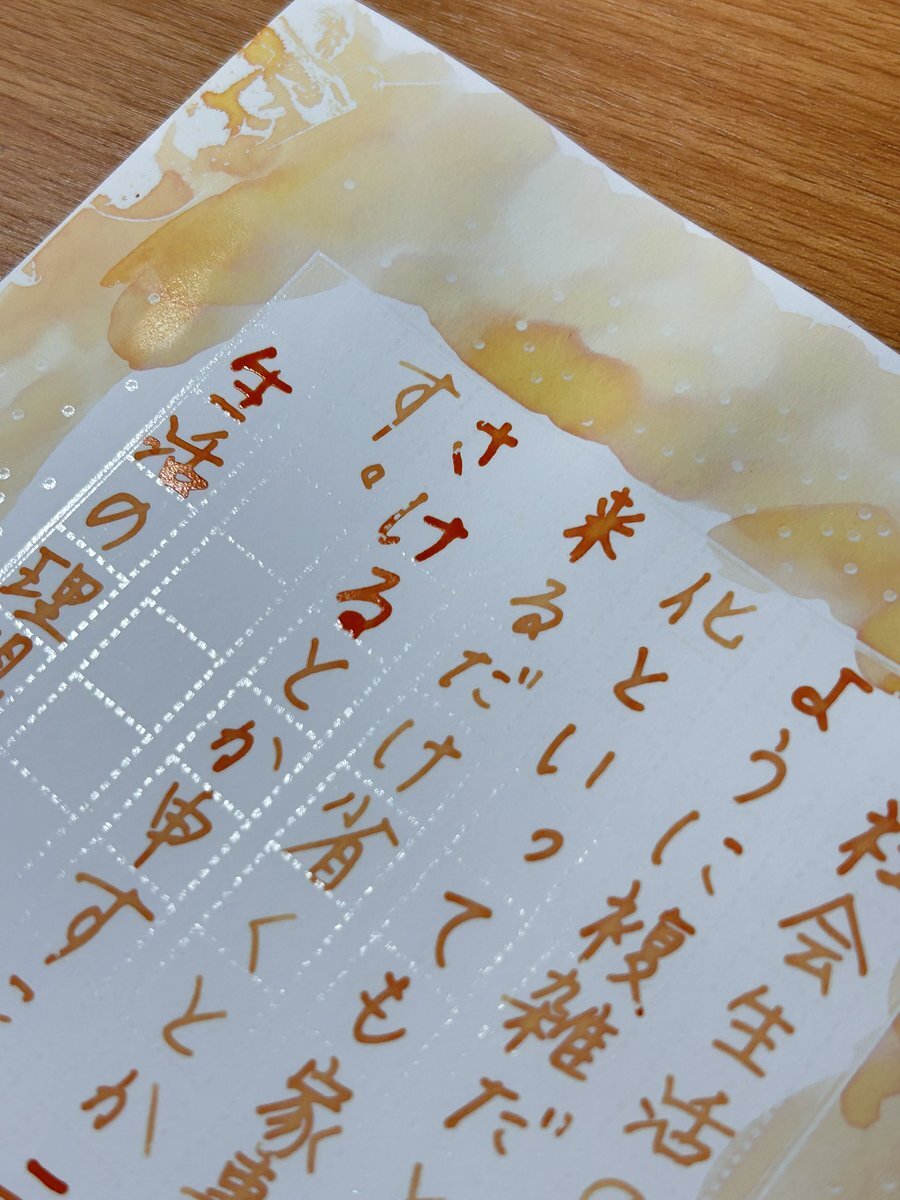 社会生活の
ように複雑だと
化といっても家事
来るだけ省くとか
さけるとか申すに
す。
生活の理想